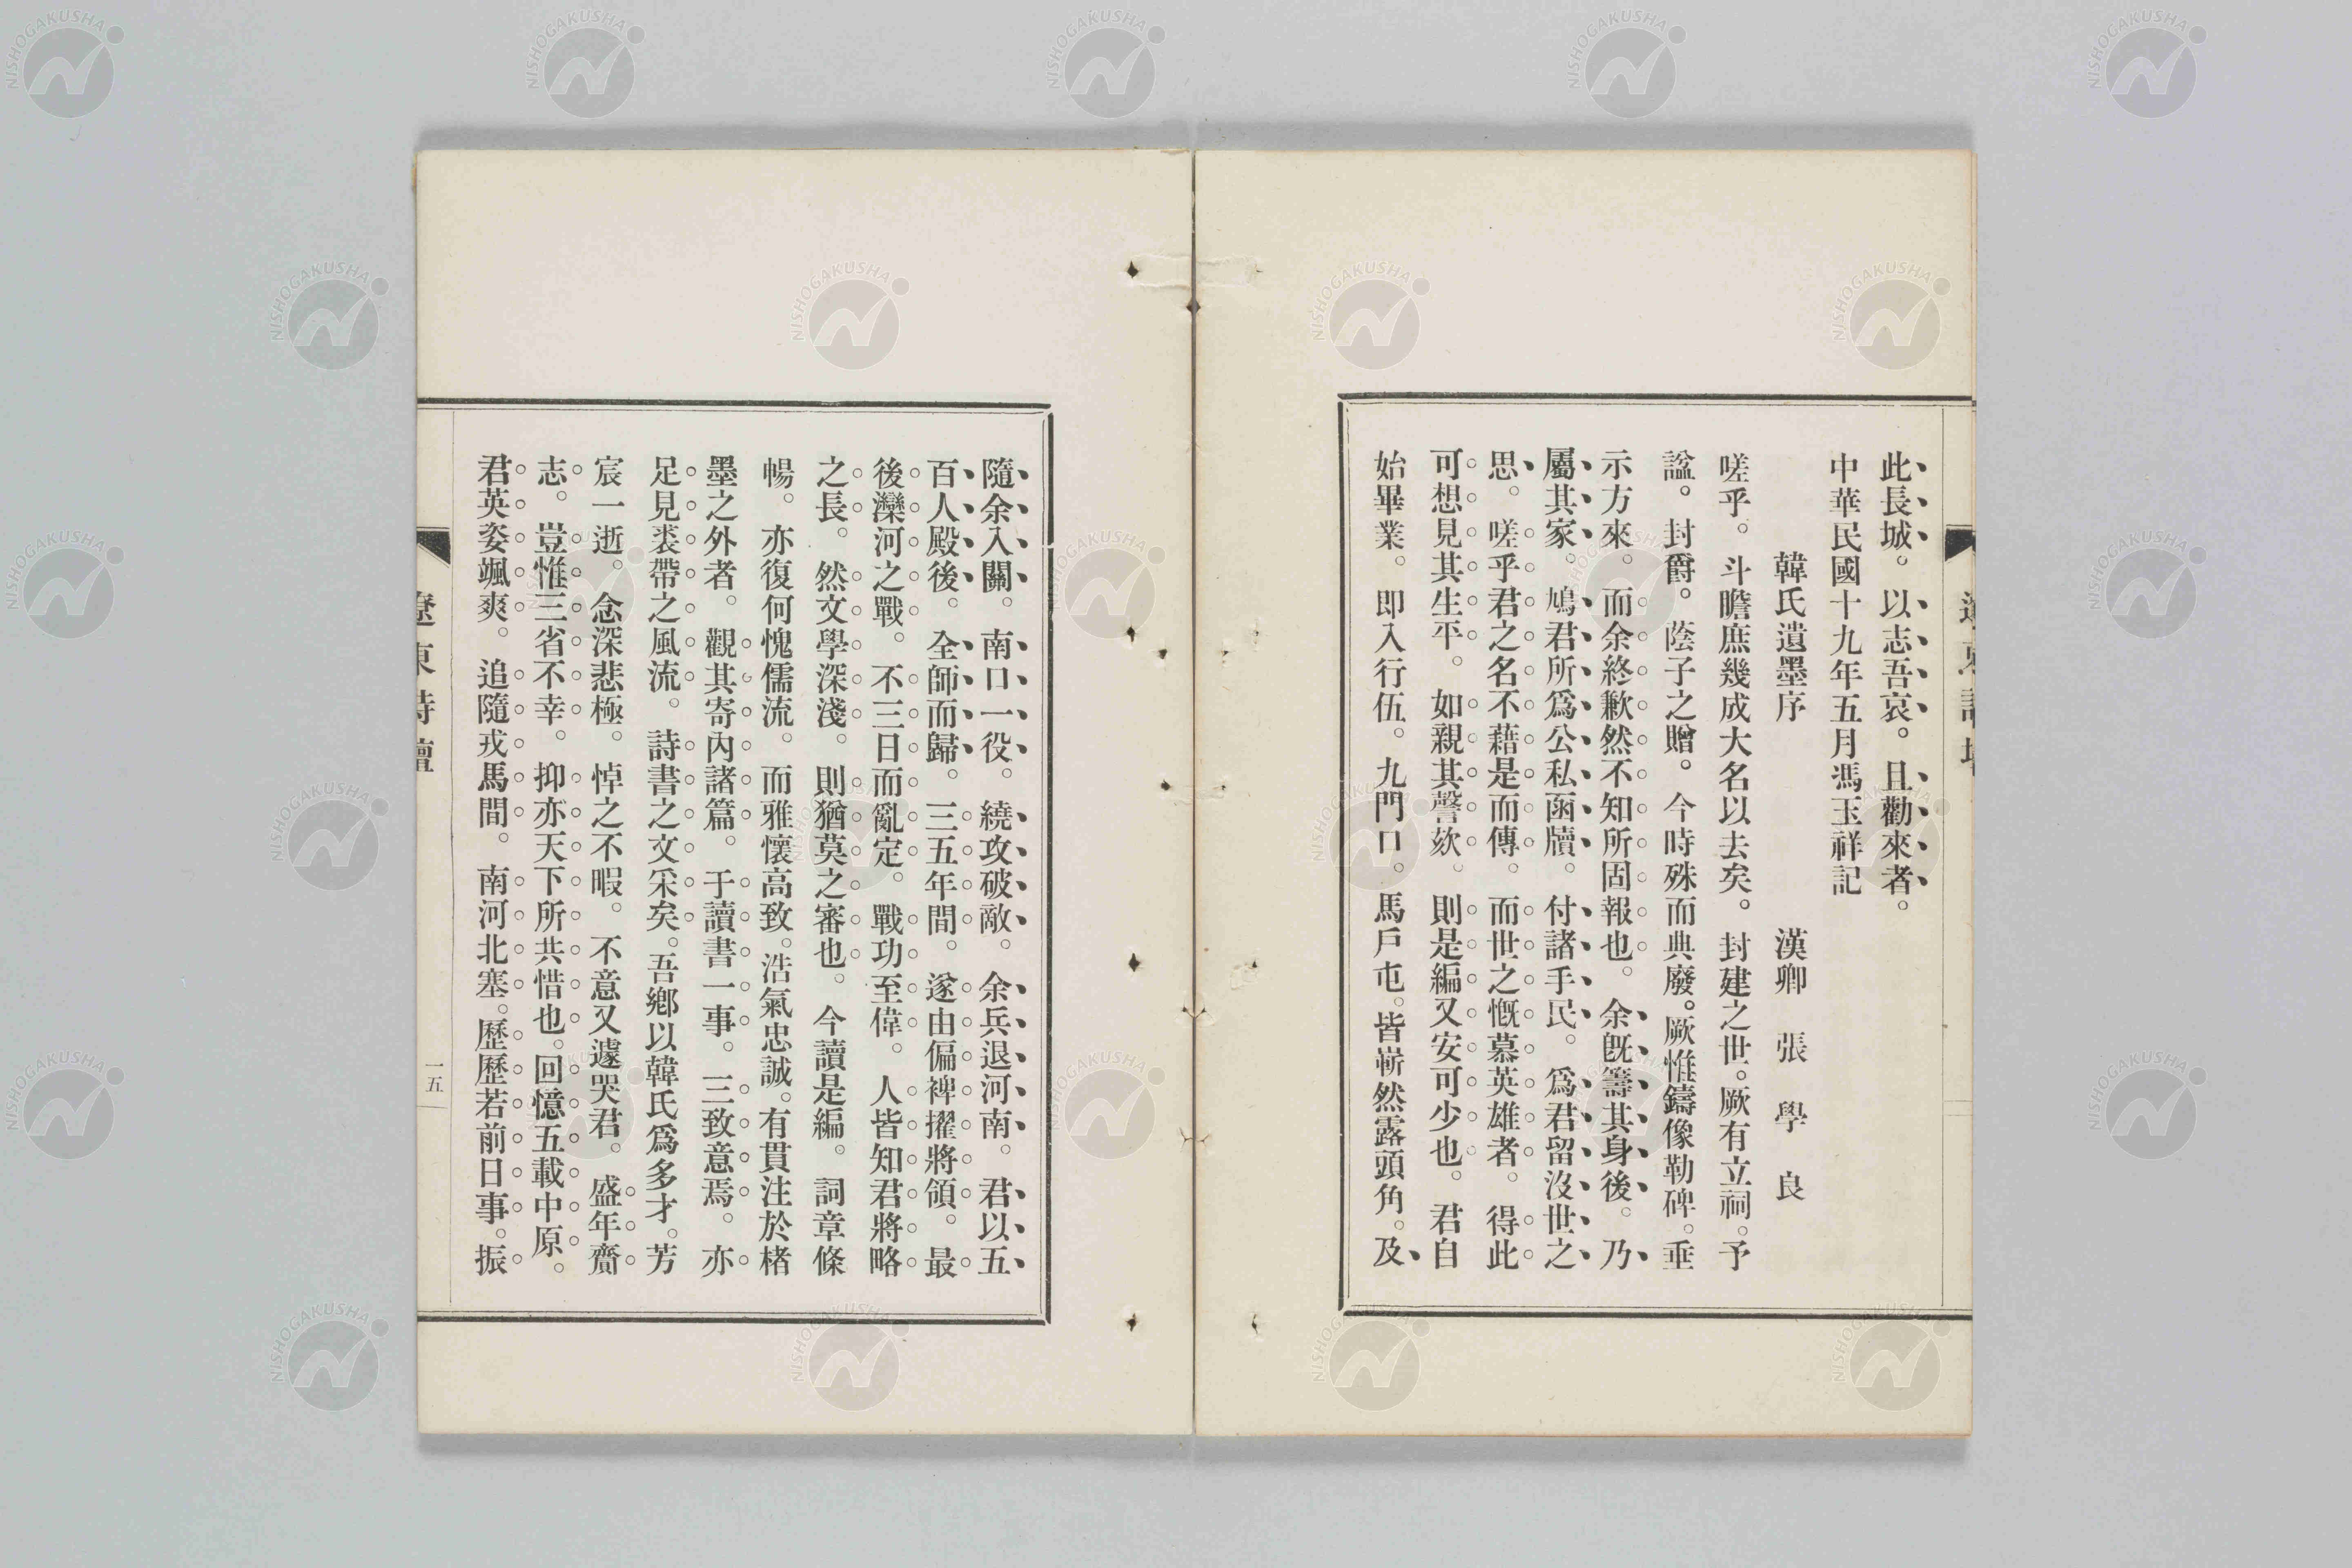 此長城。以志吾哀。且勸來者。
中華民國十九年五月馮玉祥記
韓氏遺墨序　漢卿　張學良
嗟乎。斗瞻庶幾成大名以去矣。封建之世。厥有立祠。予
諡。封爵。蔭子之贈。今時殊而典廢。厥惟鑄像勒碑。垂
示方來。而余終歉然不知所固報也。余旣籌其身後。乃
屬其家。鳩君所爲公私函牘。付諸手民。爲君留沒世之
思。嗟乎君之名不藉是而傳。而世之慨慕英雄者。得此
可想見其生平。如親其謦欬。則是編又安可少也。君自
始畢業。即入行伍。九門口。馬戶屯。皆嶄然露頭角。及
隨余入關。南口一役。繞攻破敵。余兵退河南。君以五
百人殿後。全師而歸。三五年間。遂由偏裨擢將領。最
後灤河之戰。不三日而亂定。戰功至偉。人皆知君將略
之長。然文學深淺。則猶莫之審也。今讀是編。詞章條
暢。亦復何愧儒流。而雅懷高致。浩氣忠誠。有貫注於楮
墨之外者。觀其寄內諸篇。于讀書一事。三致意焉。亦
足見裘帶之風流。詩書之文采矣。吾鄉以韓氏爲多才。芳
宸一逝。念深悲極。悼之不暇。不意又遽哭君。盛年齎
志。豈惟三省不幸。抑亦天下所共惜也。回憶五載中原。
君英姿颯爽。追隨戎馬間。南河北塞。歷歷若前日事。振
遼東詩壇
一五
NISHOGAKUSHA